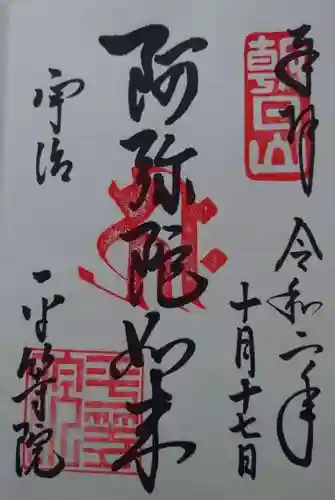 奉拝
朝日山
令和二年
十月十七日
阿弥陀如来
宇治
平等院